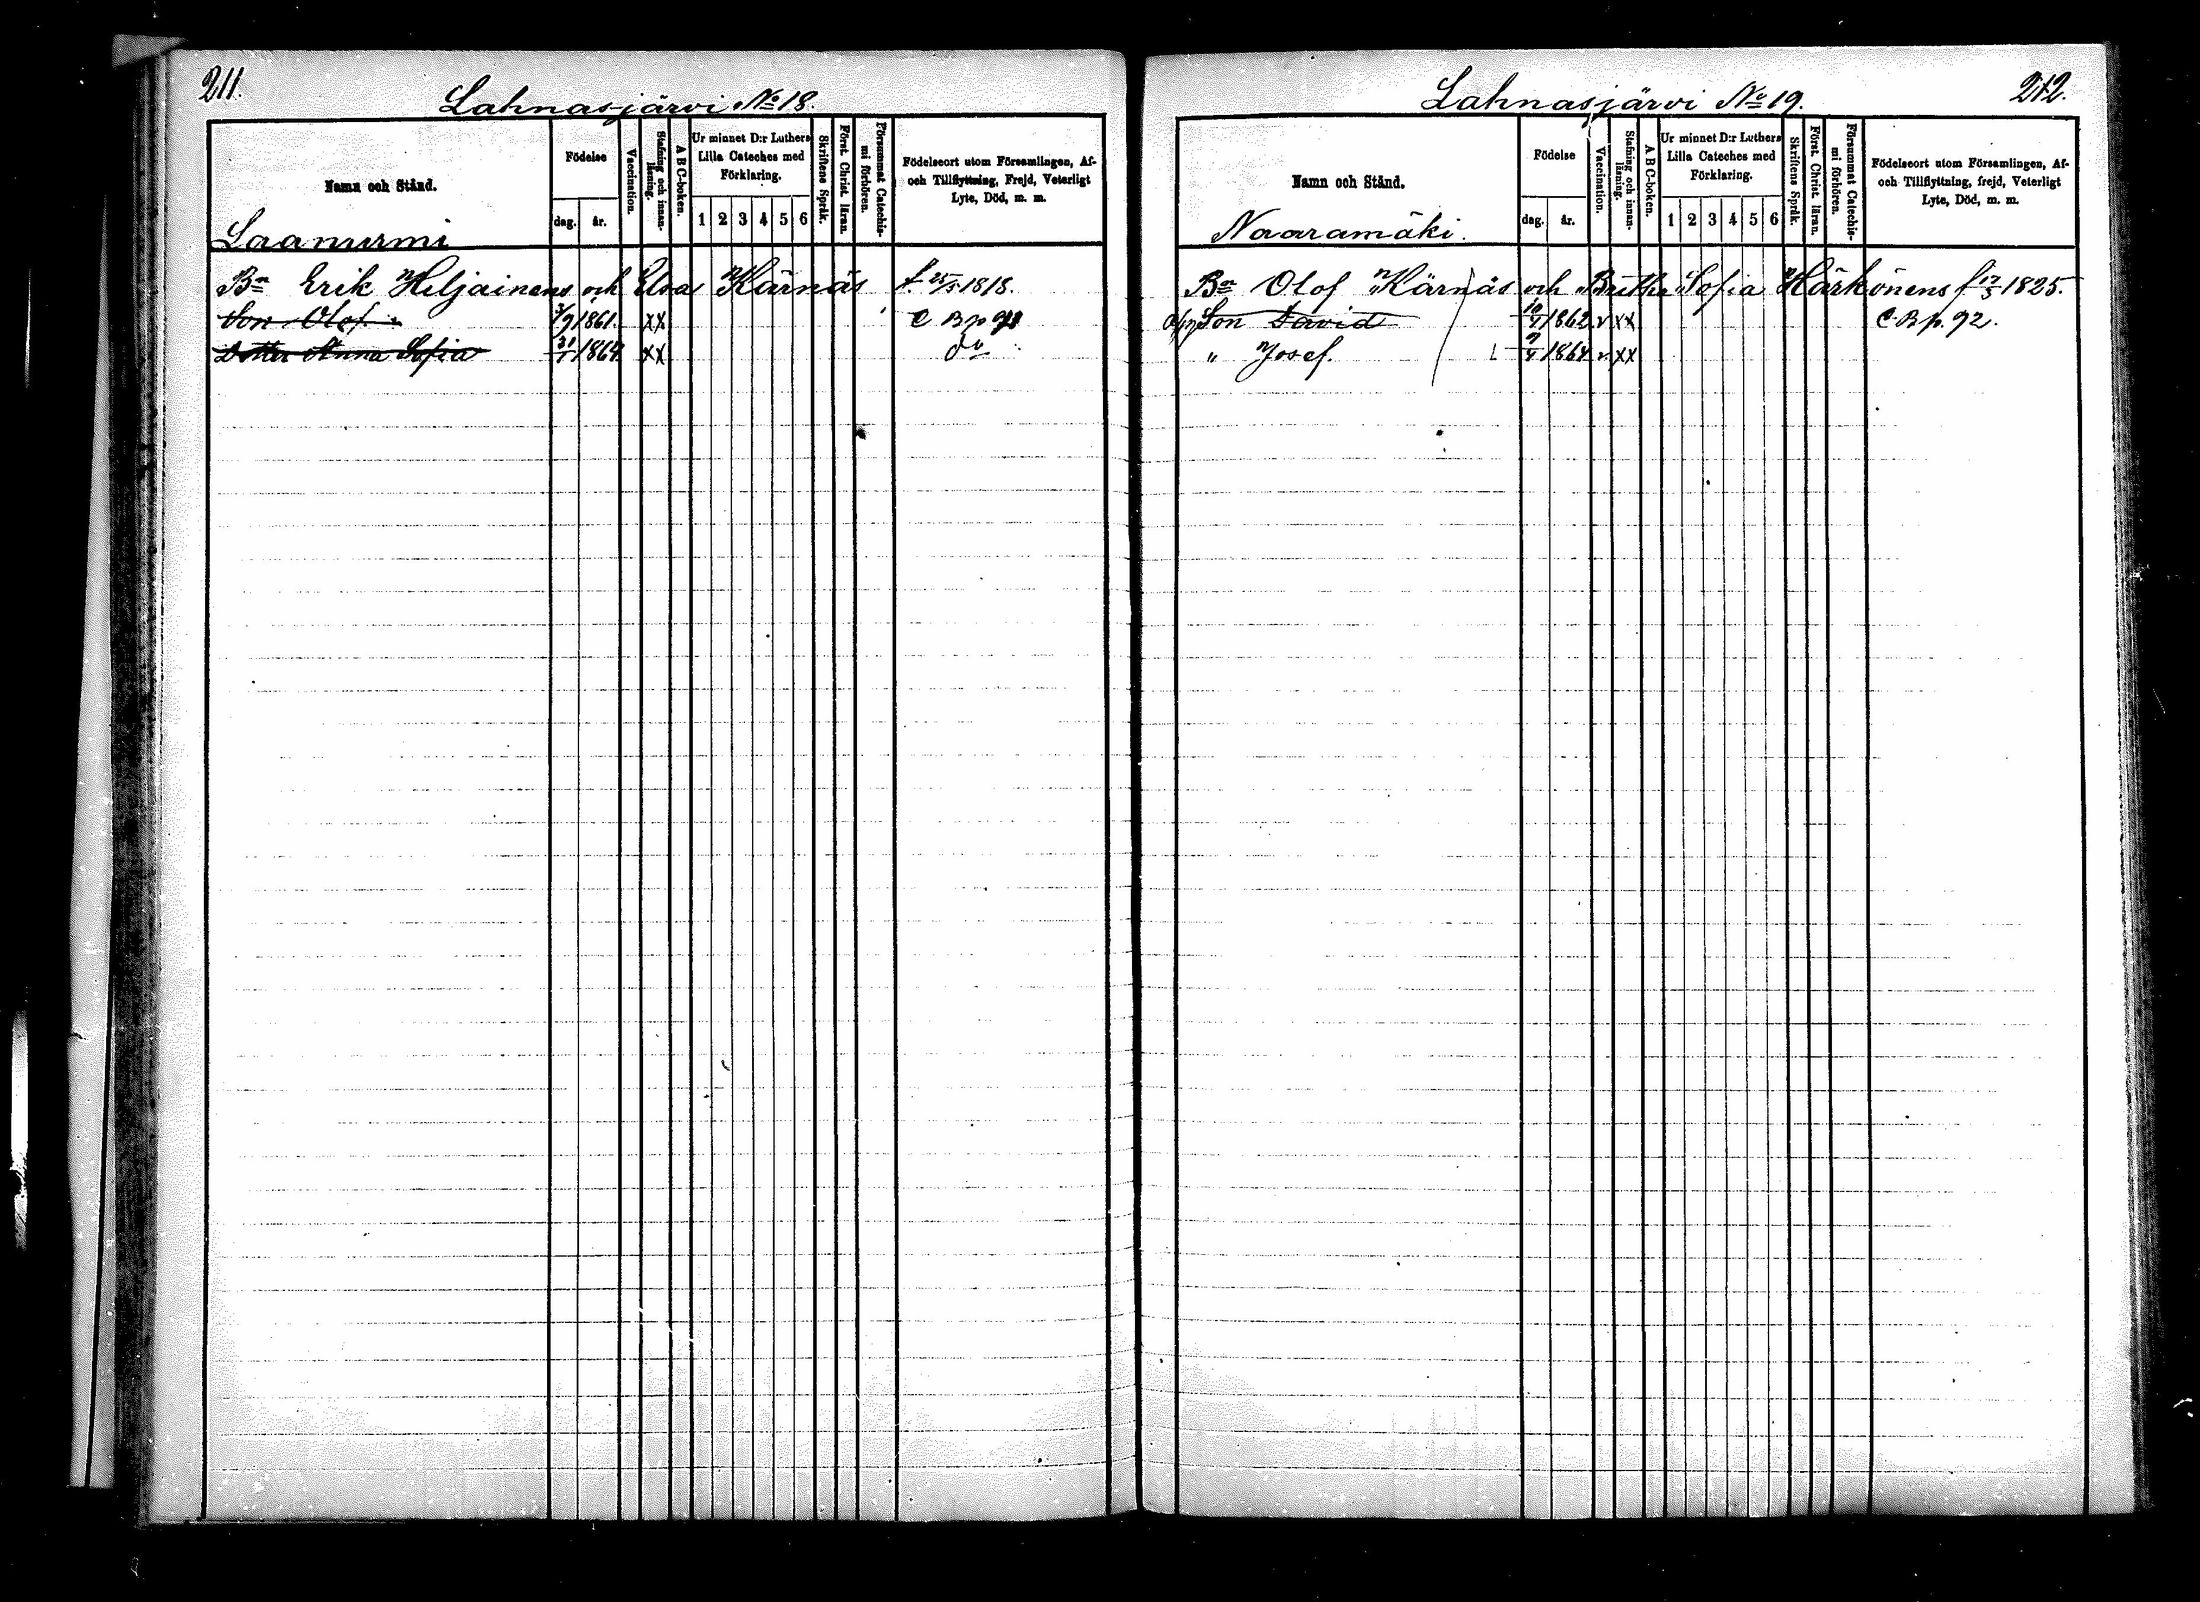 211.
Lahnasjärvi No 18.
Namn och Stånd.
Födelse
dag. år.
Vaccination.
Stafning och innanläsning.
A B C-boken.
Ur minnet D:r Luthers
Lilla Cateches med
Förklaring.
1 2 3 4 5 6
Skriftens Språk.
Först. Christ. läran.
Försummat Catechismi förhören.
Födelseort utom Församlingen, Af-
och Tillflyttning, Frejd, Veterligt
Lyte, Död, m. m.
Laanurmi
Bn Erik Hiljainens och Elsa Kärnäs f. 25/5 1818.
Son Olof 1861. xx C B p 91
Dotter Anna Sofia 31/1 1864. xx do
Lahnasjärvi No 19.
212.
Namn och Stånd.
Födelse
dag. år.
Vaccination.
Stafning och innanläsning.
A B C-boken.
Ur minnet D:r Luthers
Lilla Cateches med
Förklaring.
1 2 3 4 5 6
Skriftens Språk.
Först. Christ. läran.
Försummat Catechismi förhören.
Födelseort utom Församlingen, Af-
och Tillflyttning, frejd, Veterligt
Lyte, Död, m. m.
Naaramäki.
Bn Olof Kärnäs och Britha Sofia Härkönens f 17/3 1825.
Son David 10/4 1862 v xx C. B p. 92.
" Josef. 1864 v xx